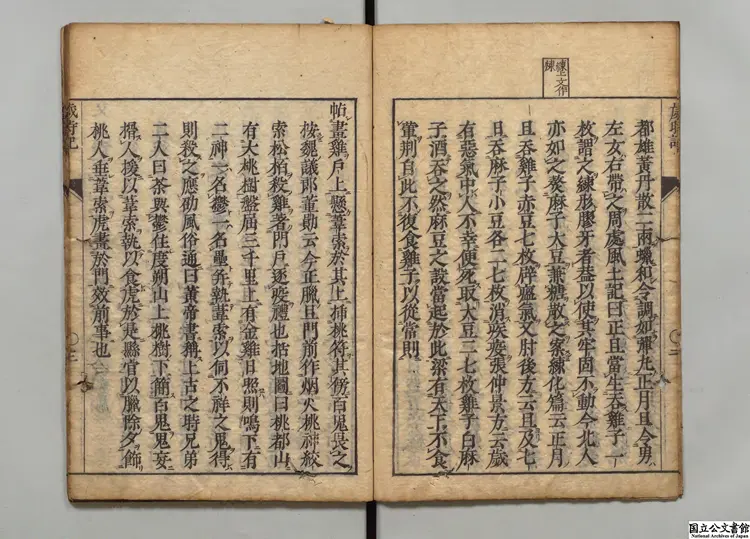 都雄黃丹散二兩蠟和令調如彈丸正月旦令男
左女右帶之周處風土記曰正旦當生吞雞子一
枚謂之練形膠牙者蓋以使其牢固不動今北人
亦如之熬麻子大豆兼糖散之案練化篇云正月
旦吞雞子亦豆七枚辟瘟氣又肘後方云旦及七
日吞麻子小豆各二七枚消疾疫張仲景方云歲
有惡氣中人不幸便死取大豆二七枚雞子白麻
子酒吞之然麻豆之設當起於此梁有天下不食
葷荆自此不復食雞子以從當則
帖畫雞戶上懸葦索於其上插桃符其傍百鬼畏之
按魏議郎董勛云今正臘旦門前作烟火桃神絞
索松柏殺雞著門戶逐疫禮也括地圖曰桃都山
有大桃樹盤屈三千里上有金雞日照則鳴下有
二神一名鬱一名壘并執葦索以伺不祥之鬼得
則殺之應劭風俗通曰黃帝書稱上古之時兄弟
二人曰荼與鬱住度朔山上桃樹下簡百鬼鬼妄
搰人援以葦索執以食虎於是縣官以臘除夕飾
桃人垂葦索虎畫於門效前事也
歲時記
国立公文書館
National Archives of Japan